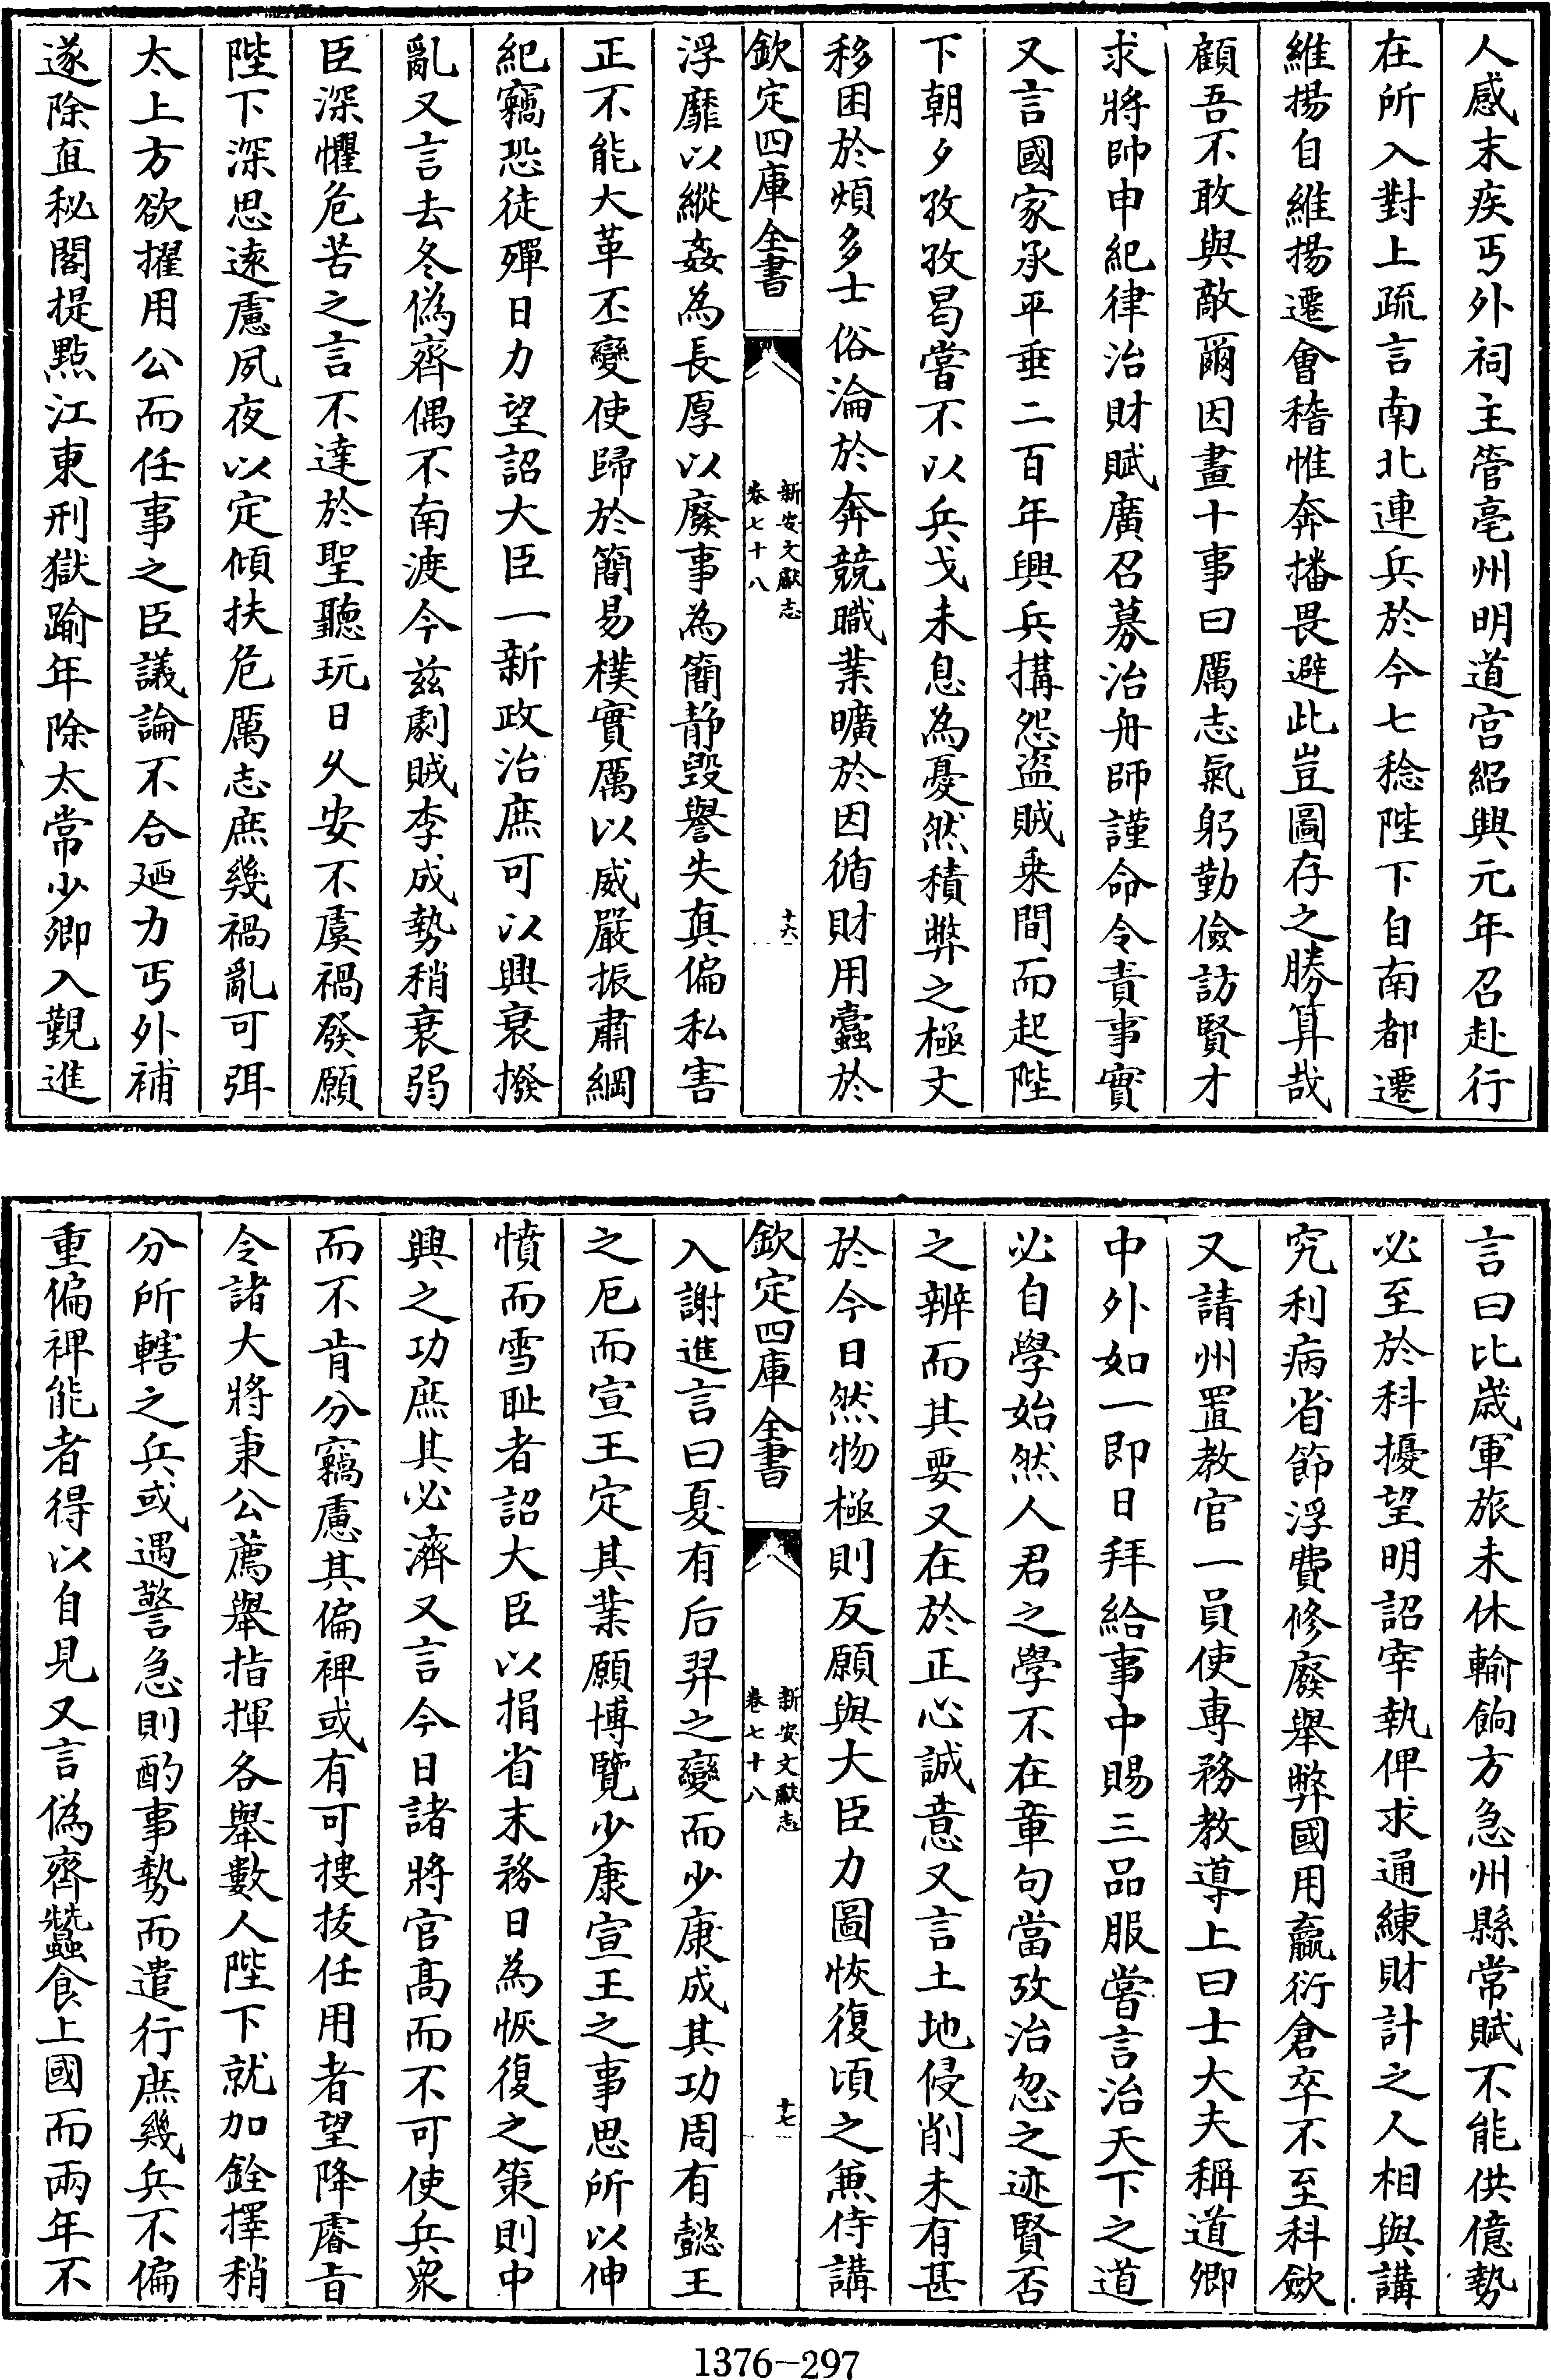 人感末疾丐外祠主管亳州明道宫紹興元年召赴行
在所入對上疏言南北連兵於今七稔陛下自南都遷
維揚自維揚遷會稽惟奔播畏避此豈圖存之勝算哉
顧吾不敢與敵爾因畫十事曰厲志氣躬勤儉訪賢才
求將帥申紀律治財賦廣召募治舟師謹命令責事實
又言國家承平垂二百年興兵搆怨盗賊乗間而起陛
下朝夕孜孜曷嘗不以兵戈未息為憂然積弊之極文
移困於煩多士俗淪於奔競職業曠於因循財用蠧於
欽定四庫全書
新安文獻志
卷七十八
十六
浮靡以縱姦為長厚以廢事為簡静毁譽失真偏私害
正不能大革丕變使歸於簡易樸實厲以威嚴振肅綱
紀竊恐徒殫日力望詔大臣一新政治庶可以興衰撥
亂又言去冬偽齊偶不南渡今兹劇賊李成勢稍衰弱
臣深懼危苦之言不達於聖聽玩日久安不虞禍發願
陛下深思遠慮夙夜以定傾扶危厲志庶幾禍亂可弭
太上方欲擢用公而任事之臣議論不合廼力丐外補
遂除直秘閣提點江東刑獄踰年除太常少卿入覲進
言曰比嵗軍旅未休輸餉方急州縣常賦不能供億勢
必至於科擾望明詔宰執俾求通練財計之人相與講
究利病省節浮費修廢舉弊國用贏衍倉卒不至科歛
又請州置教官一員使專務教導上曰士大夫稱道卿
中外如一即日拜給事中賜三品服嘗言治天下之道
必自學始然人君之學不在章句當攷治忽之迹賢否
之辨而其要又在於正心誠意又言土地侵削未有甚
於今日然物極則反願與大臣力圖恢復頃之兼侍講
欽定四庫全書
新安文獻志
卷七十八
十七
入謝進言曰夏有后羿之變而少康成其功周有懿王
之厄而宣王定其業願博覽少康宣王之事思所以伸
憤而雪耻者詔大臣以捐省末務日為恢復之策則中
興之功庶其必濟又言今日諸將官髙而不可使兵衆
而不肯分竊慮其偏裨或有可捜拔任用者望降睿旨
令諸大將秉公薦舉指揮各舉數人陛下就加銓擇稍
分所轄之兵或遇警急則酌事勢而遣行庶幾兵不偏
重偏裨能者得以自見又言偽齊蠶食上國而兩年不
1376-297